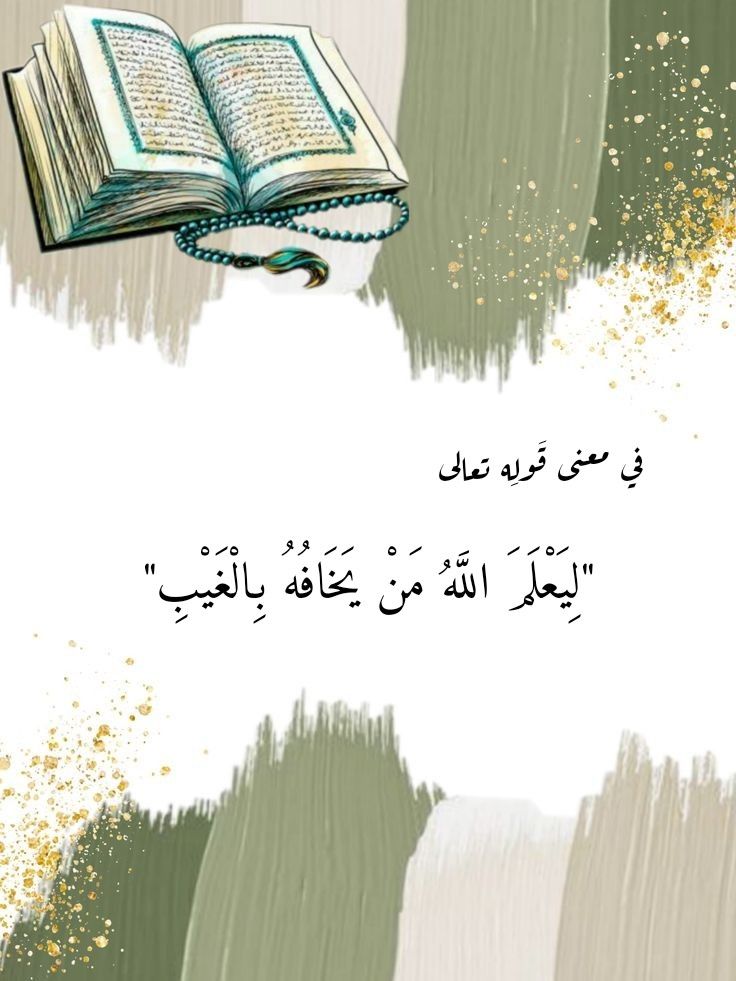 في معنى قَولِه تعالى
"لِيَعْلَمَ اللَّهُ مَنْ يَخَافُهُ بِالْغَيْبِ"